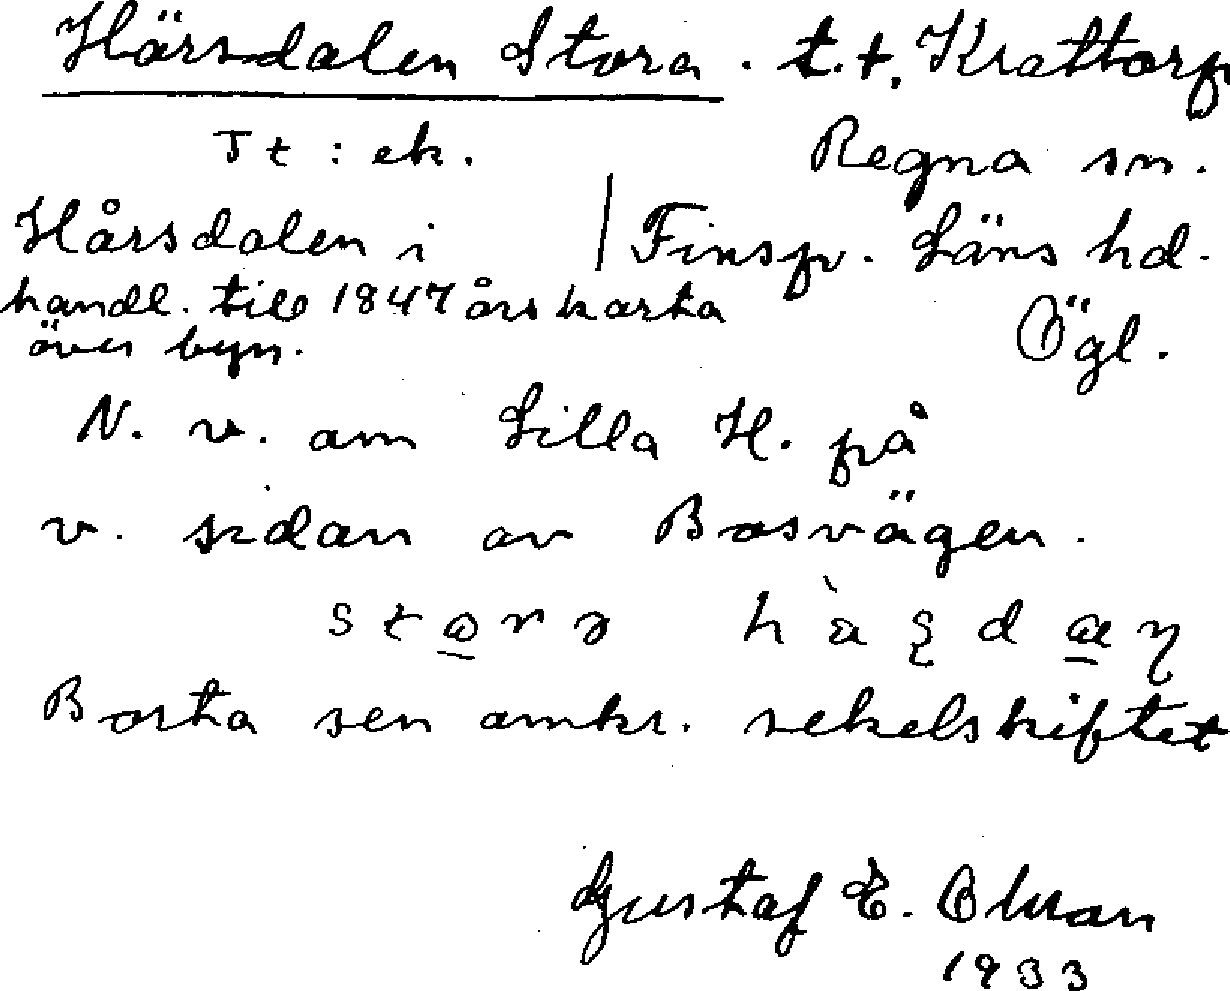 Härsdalen Stora. t.t. Krattorp
Jt: ek. Regna sn.
Hårsdalen i Finsp. Läns hd.
handl. till 1847 års karta Ögl.
över byn.
N. v. om Lilla H. på
v. sidan av Bosvägen.
Borta sen omkr. sekelskiftet
Gustaf E.
1933